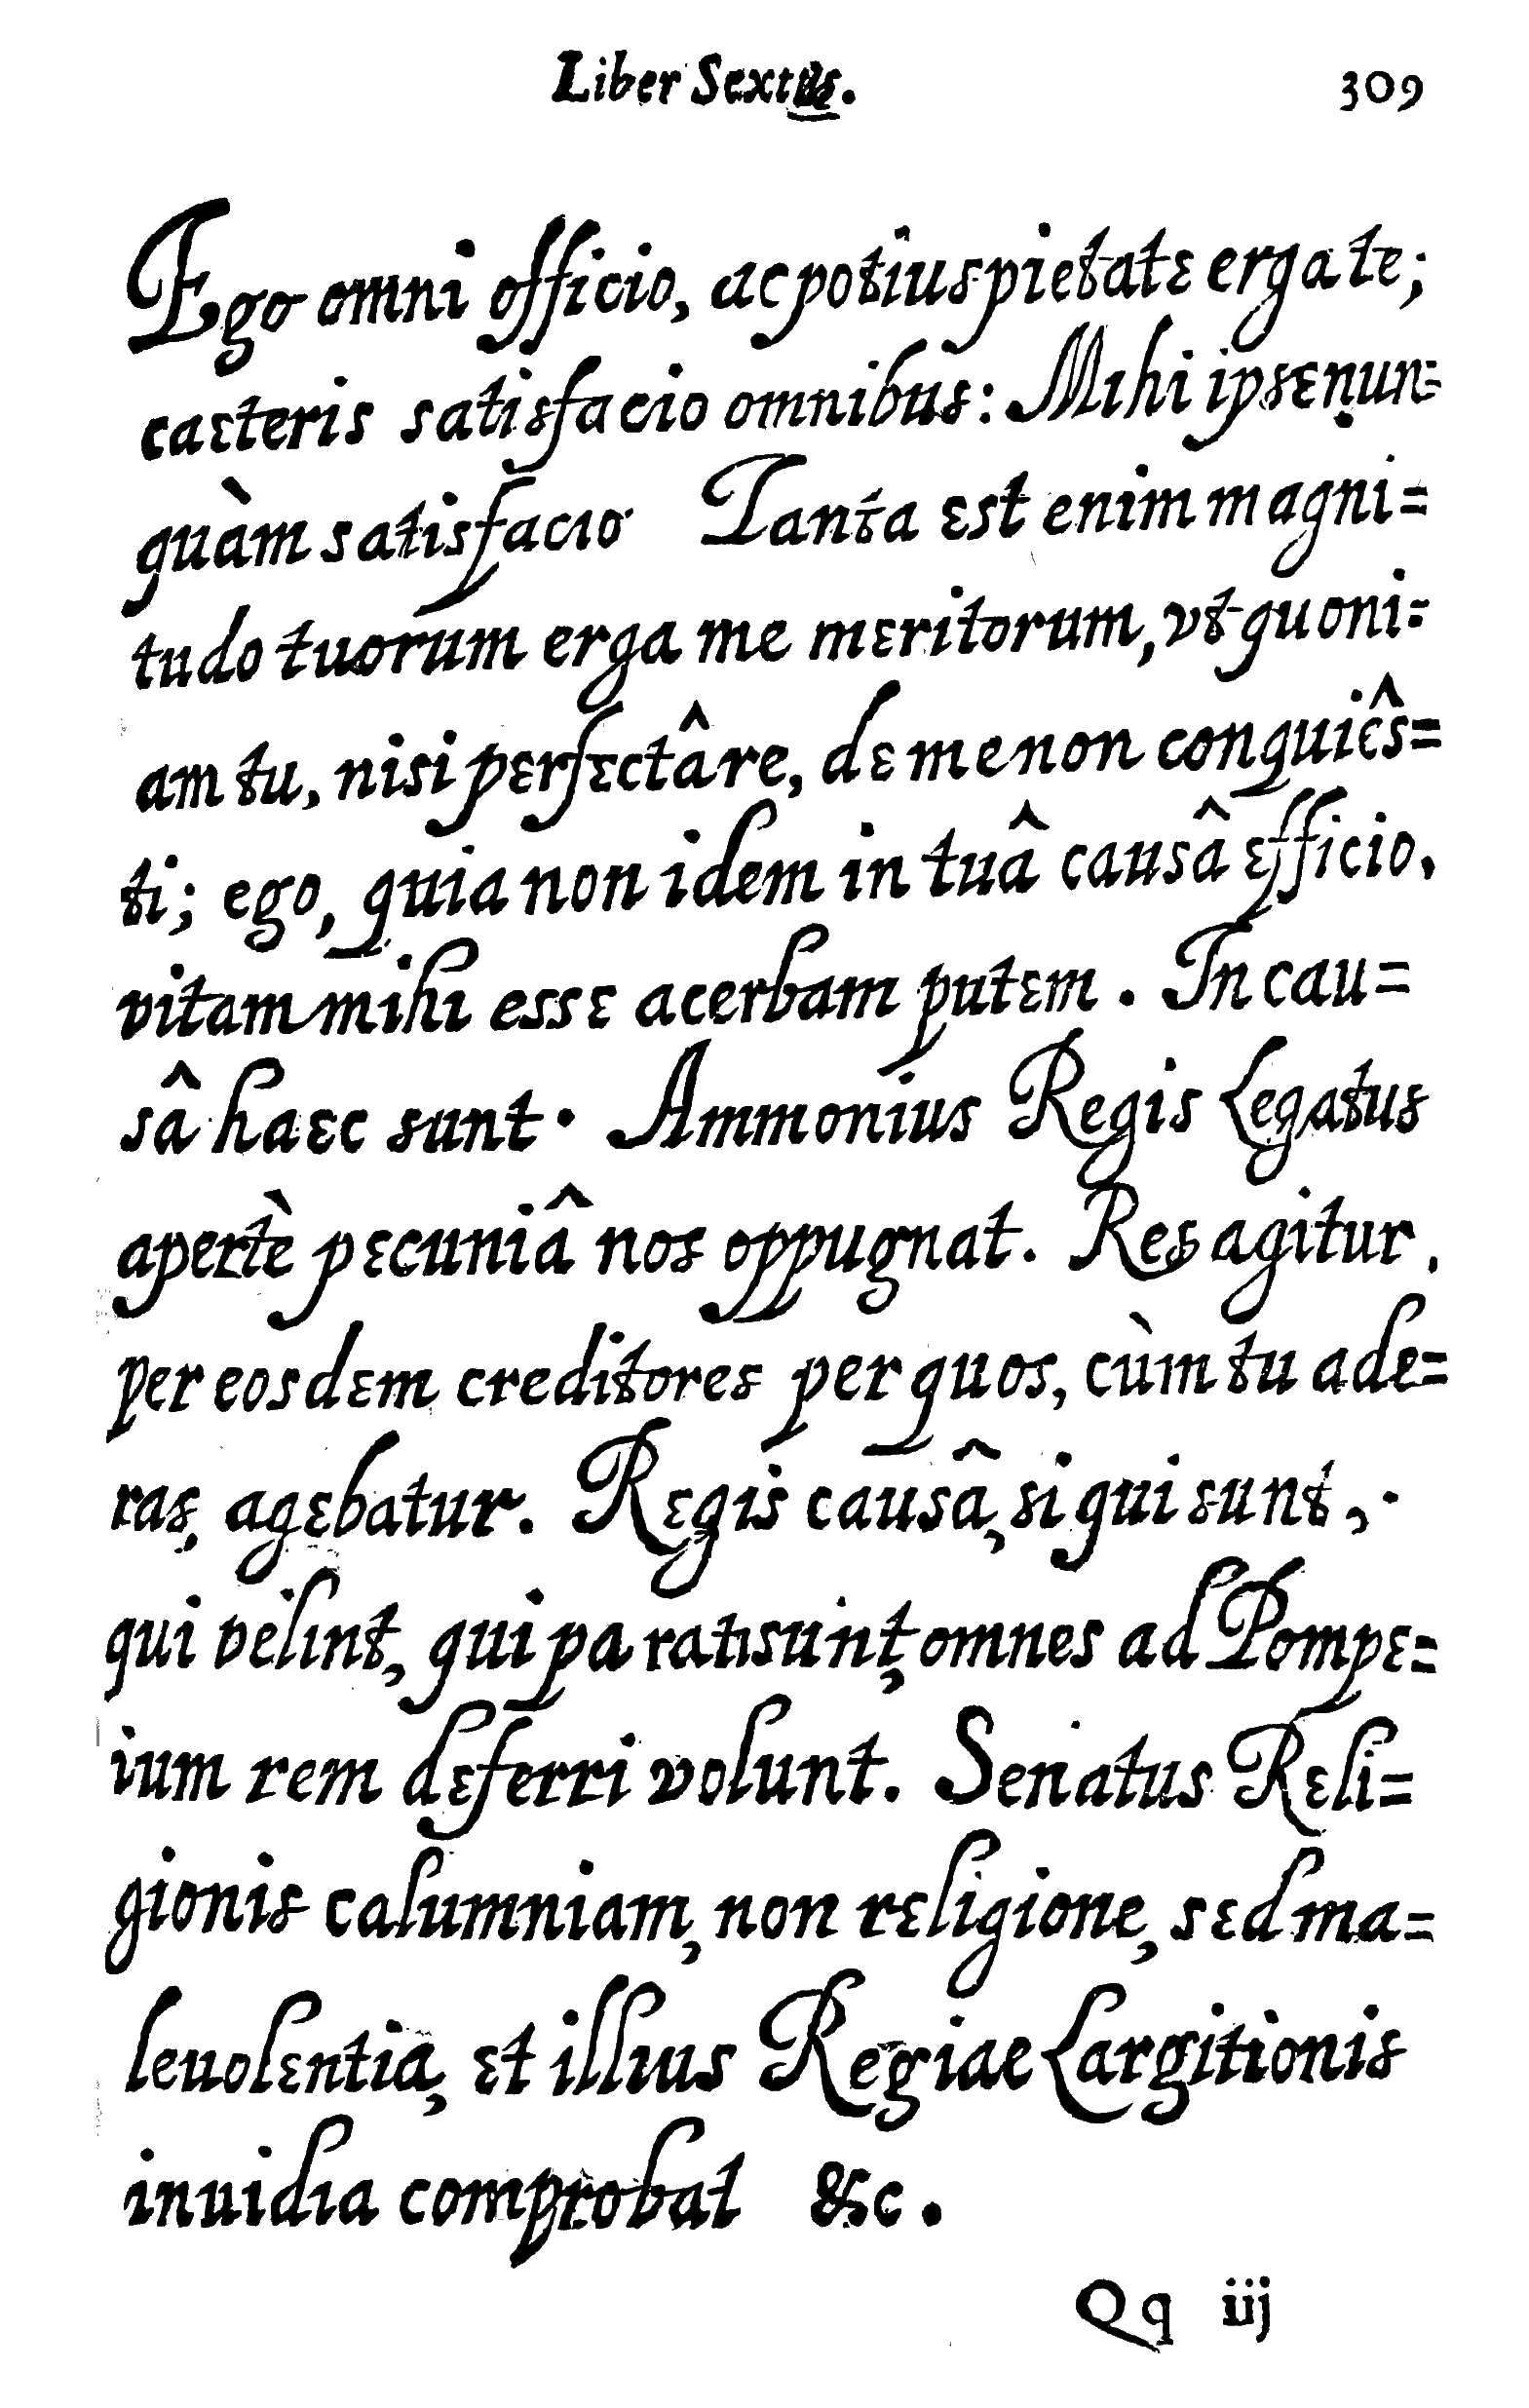 Liber Sextus. 309
Ego omni officio, ac potius pietate erga te;
caeteris satisfacio omnibus: Mihi ipse nun=
quàm satisfacio Tanta est enim magni=
tudo tuorum erga me meritorum, vt quoni=
am tu, nisi perfectâre, de me non conquiês=
ti; ego, quia non idem in tuâ causâ efficio,
vitam mihi esse acerbam putem. In cau=
sâ haec sunt. Ammonius Regis Legatus
apertè pecuniâ nos oppugnat. Res agitur,
per eosdem creditores per quos, cùm tu ade=
ras, agebatur. Regis causâ, si qui sunt,
qui velint, qui parati sunt, omnes ad Pompe=
ium rem deferri volunt. Senatus Reli=
gionis calumniam, non religione, sed ma=
leuolentia, et illius Regiae Largitionis
inuidia comprobat &c.
Qq iij